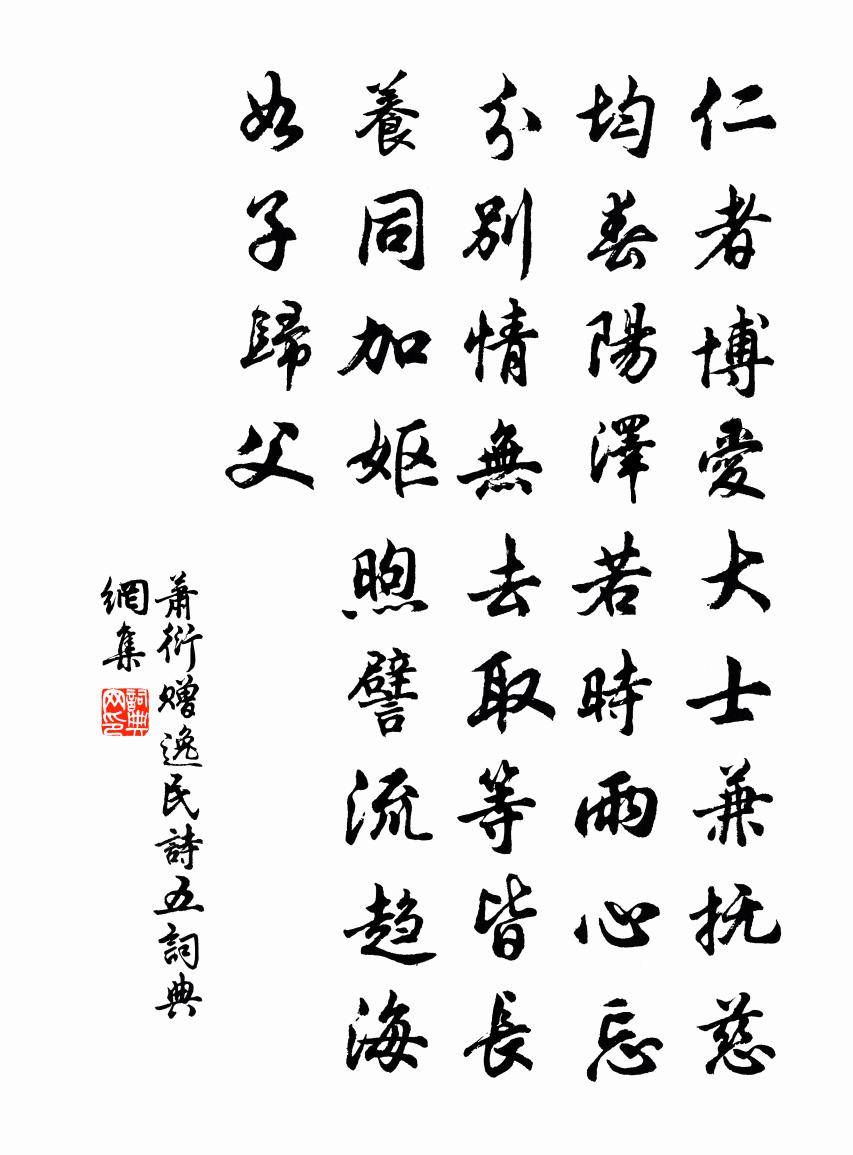 仁者博愛大士兼抚慈
均春陽澤若時雨心忘
分別情無去取等皆長
養同加妪煦譬流趋海
如子歸父
萧衍赠逸民詩五詞典
網集
詞典
网印